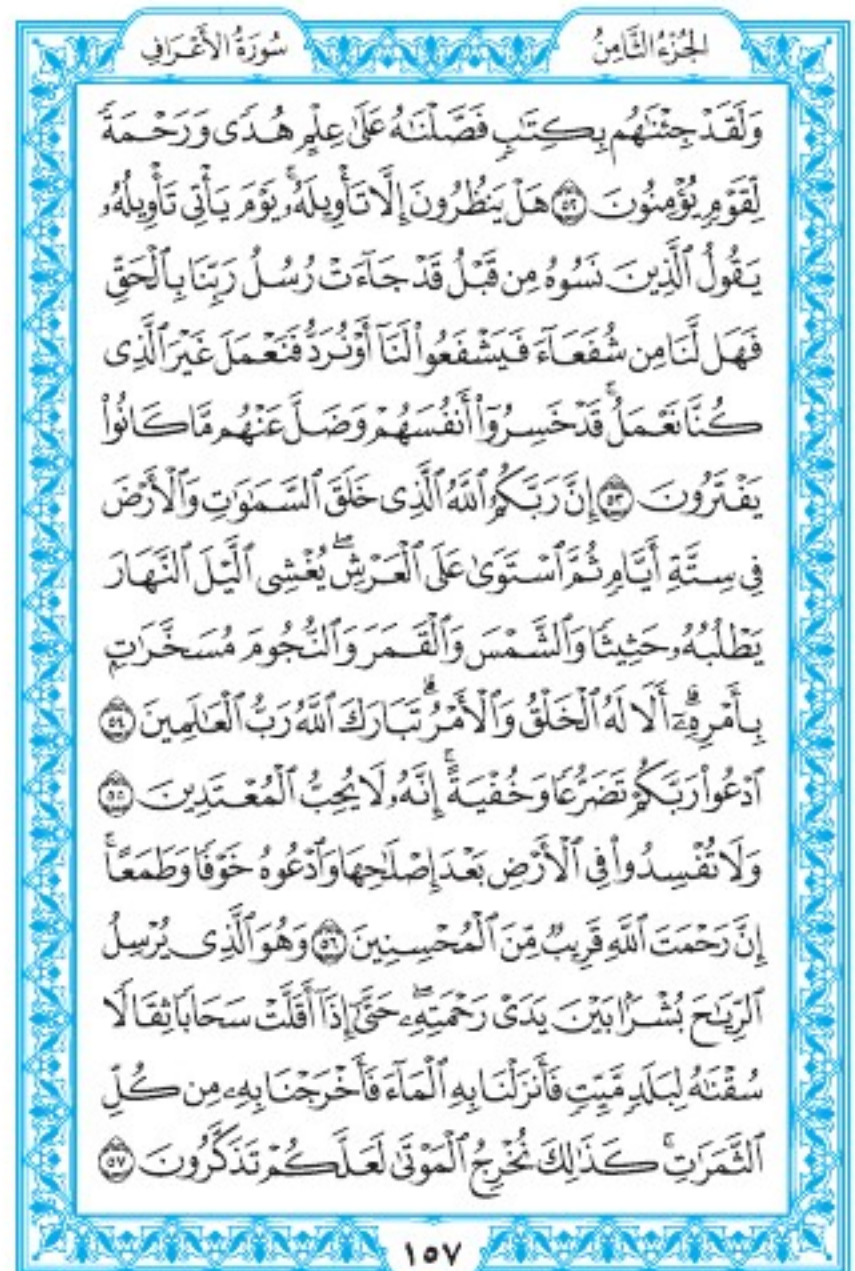 الجُزْءُ الثَّامِنُ
سُورَةُ الأَعْرَافِ
وَلَقَدْ جِئْنَٰهُم بِكِتَٰبٍ فَصَّلْنَٰهُ عَلَىٰ عِلْمٍ هُدًى وَرَحْمَةً
لِّقَوْمٍ يُؤْمِنُونَ ۝٥٢ هَلْ يَنظُرُونَ إِلَّا تَأْوِيلَهُۥۚ يَوْمَ يَأْتِى تَأْوِيلُهُۥ
يَقُولُ ٱلَّذِينَ نَسُوهُ مِن قَبْلُ قَدْ جَآءَتْ رُسُلُ رَبِّنَا بِٱلْحَقِّ
فَهَل لَّنَا مِن شُفَعَآءَ فَيَشْفَعُوا۟ لَنَآ أَوْ نُرَدُّ فَنَعْمَلَ غَيْرَ ٱلَّذِى
كُنَّا نَعْمَلُۚ قَدْ خَسِرُوٓا۟ أَنفُسَهُمْ وَضَلَّ عَنْهُم مَّا كَانُوا۟
يَفْتَرُونَ ۝٥٣ إِنَّ رَبَّكُمُ ٱللَّهُ ٱلَّذِى خَلَقَ ٱلسَّمَٰوَٰتِ وَٱلْأَرْضَ
فِى سِتَّةِ أَيَّامٍ ثُمَّ ٱسْتَوَىٰ عَلَى ٱلْعَرْشِۖ يُغْشِى ٱلَّيْلَ ٱلنَّهَارَ
يَطْلُبُهُۥ حَثِيثًا وَٱلشَّمْسَ وَٱلْقَمَرَ وَٱلنُّجُومَ مُسَخَّرَٰتٍۭ
بِأَمْرِهِۦٓۗ أَلَا لَهُ ٱلْخَلْقُ وَٱلْأَمْرُۗ تَبَارَكَ ٱللَّهُ رَبُّ ٱلْعَٰلَمِينَ ۝٥٤
ٱدْعُوا۟ رَبَّكُمْ تَضَرُّعًا وَخُفْيَةًۚ إِنَّهُۥ لَا يُحِبُّ ٱلْمُعْتَدِينَ ۝٥٥
وَلَا تُفْسِدُوا۟ فِى ٱلْأَرْضِ بَعْدَ إِصْلَٰحِهَا وَٱدْعُوهُ خَوْفًا وَطَمَعًاۚ
إِنَّ رَحْمَتَ ٱللَّهِ قَرِيبٌ مِّنَ ٱلْمُحْسِنِينَ ۝٥٦ وَهُوَ ٱلَّذِى يُرْسِلُ
ٱلرِّيَٰحَ بُشْرًۢا بَيْنَ يَدَىْ رَحْمَتِهِۦۖ حَتَّىٰٓ إِذَآ أَقَلَّتْ سَحَابًا ثِقَالًا
سُقْنَٰهُ لِبَلَدٍ مَّيِّتٍ فَأَنزَلْنَا بِهِ ٱلْمَآءَ فَأَخْرَجْنَا بِهِۦ مِن كُلِّ
ٱلثَّمَرَٰتِۚ كَذَٰلِكَ نُخْرِجُ ٱلْمَوْتَىٰ لَعَلَّكُمْ تَذَكَّرُونَ ۝٥٧
١٥٧